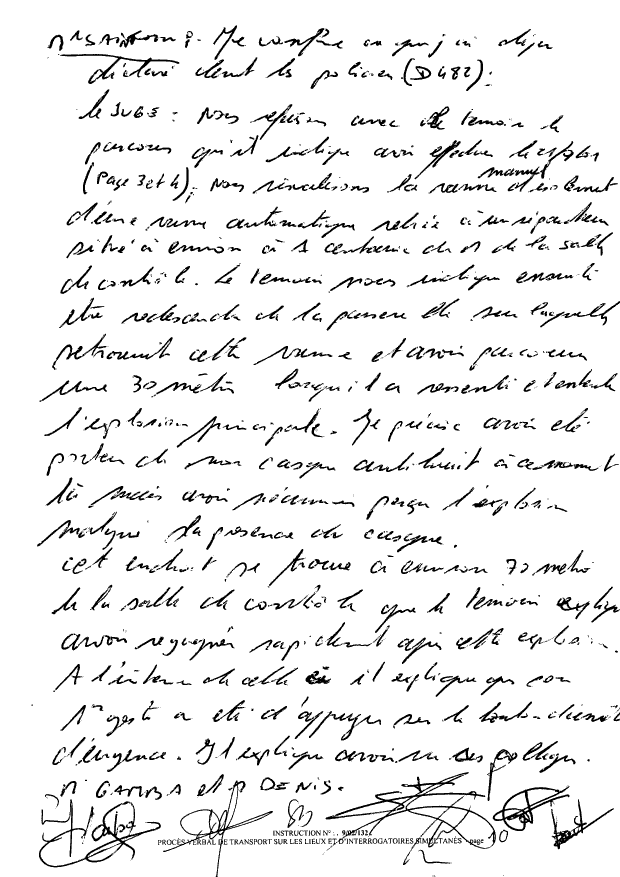 Mr SAINTOIN : Je confirme ce que j'ai déjà
déclaré devant les policiers (D482) :
le JUGE : Nous refaisons avec le témoin le
parcours qu'il indique avoir effectué le 21/9/01
(page 3 et 4) ; Nous visualisons la vanne manuel d'isolement
d'une vanne automatique reliée à un réparateur
situé à environ à 1 centaine de m de la salle
de contrôle. Le témoin nous indique ensuite
être redescendu de la passerelle sur laquelle
se trouvait cette vanne et avoir parcouru
une 30 mètre lorsqu'il a ressenti et entendu
l'explosion principale. Je précise avoir été
porteur de mon casque antibruit à ce moment
là mais avoir néanmoins perçu l'explosion
malgré la présence du casque.
cet endroit se trouve à environ 70 mètre
de la salle de contrôle que le témoin explique
avoir regagnée rapidement après cette explosion.
A l'intérieur de celle ci il explique que son
1er geste a été d'appuyer sur le bouton
d'urgence. Il explique avoir vu ses collègues.
M GAMBA et M DENIS.
INSTRUCTION N° : . 9/02/132.
PROCÈS VERBAL DE TRANSPORT SUR LES LIEUX ET D'INTERROGATOIRES SIMULTANÉS - page 10